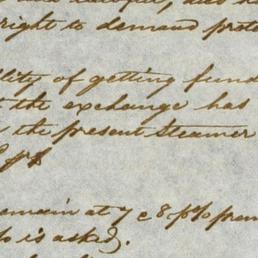 right to demand prote
lity of getting fund
the exchange has
the present Steamer
remain at 7 c 8 p% prem
is asked.